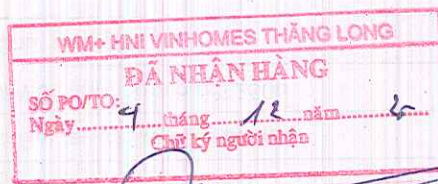 WM+ HNI VINHOMES THĂNG LONG
ĐÃ NHẬN HÀNG
SỐ PO/TO:
Ngày.....4.....tháng.....12.....năm.........
Chữ ký người nhận